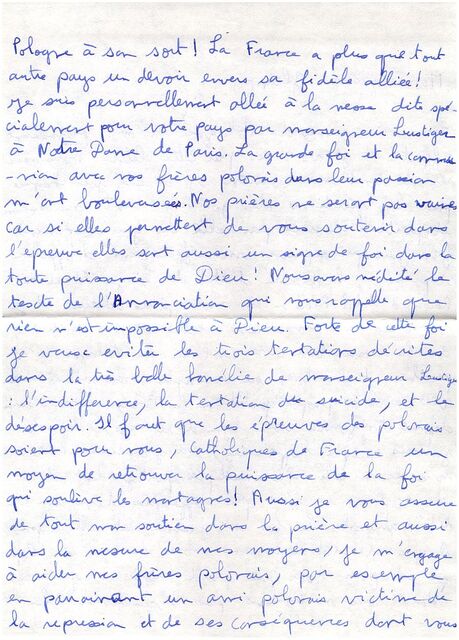 Pologne à son sort! La France a plus que tout
autre pays un devoir envers sa fidèle alliée!
Je suis personnellement allée à la messe dite spé-
cialement pour votre pays par monseigneur Lustiger
à Notre Dame de Paris. La grande foi et la commu-
-nion avec nos frères polonais dans leur passion
m'ont bouleversées. Nos prières ne seront pas vaines
car si elles permettent de vous soutenir dans
l'épreuve elles sont aussi un signe de foi dans la
toute puissance de Dieu! Nous avons médité le
texte de l'Annonciation qui nous rappelle que
rien n'est impossible à Dieu. Forte de cette foi
je veux eviter les trois tentations décrites
dans la très belle homélie de monseigneur Lustiger
: l'indifférence, la tentation du suicide, et le
desespoir. Il faut que les épreuves des polonais
soient pour nous, Catholiques de France un
moyen de retrouver la puissance de la foi
qui soulève les montagnes! Aussi je vous assure
de tout mon soutien dans la prière et aussi
dans la mesure de mes moyens, je m'engage
à aider mes frères polonais, par exemple
en parrainant un ami polonais victime de
la repression et de ses conséquences dont vous